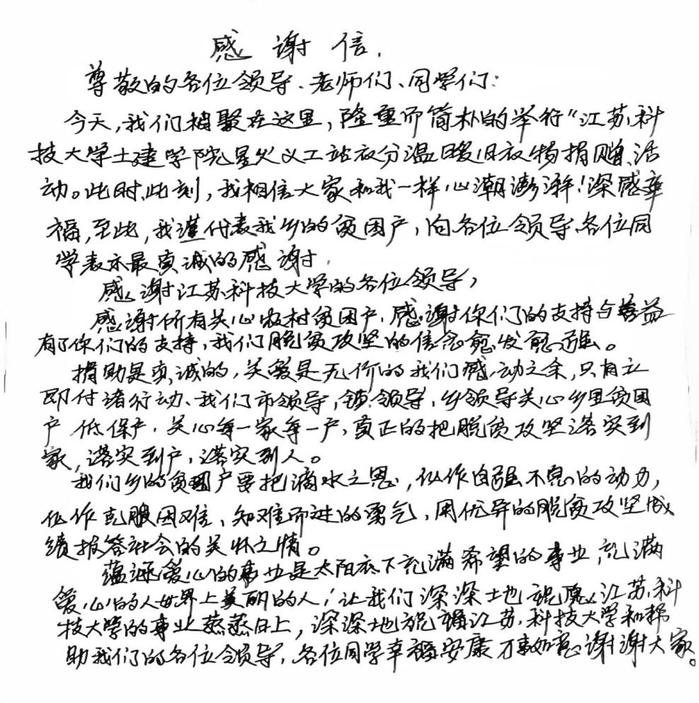 感谢信.
尊敬的各位领导、老师们、同学们:
今天,我们相聚在这里,隆重而简朴的举行“江苏科
技大学土建学院星火义工站衣分温暖旧衣物捐赠活
动。此时此刻,我相信大家和我一样心潮澎湃!深感幸
福,至此,我谨代表我乡的贫困户,向各位领导各位同
学表示最真诚的感谢.
感谢江苏科技大学的各位领导,
感谢所有关心农村贫困户,感谢你们的支持与
有了你们的支持,我们脱贫攻坚的信念愈发顽强。
捐助是真诚的,关爱是无价的我们感动之余,只有立
即付诸行动、我们市领导,镇领导,乡领导关心乡里贫困
户低保户,关心每一家每一户,真正的把脱贫攻坚落实到
家,落实到户,落实到人。
我们乡的贫困户要把滴水之恩,化作自强不息的动力,
化作克服困难,知难而进的勇气,用优异的脱贫攻坚成
绩报答社会的关怀之情。
蕴涵爱心的事业是太阳底下充满希望的事业,充满
爱心的人世界上美丽的人,让我们深深土地祝愿江苏科
技大学的事业蒸蒸日上,深深地祝福江苏科技大学和帮
助我们的各位领导,各位同学幸福安康万事如意谢谢大家。